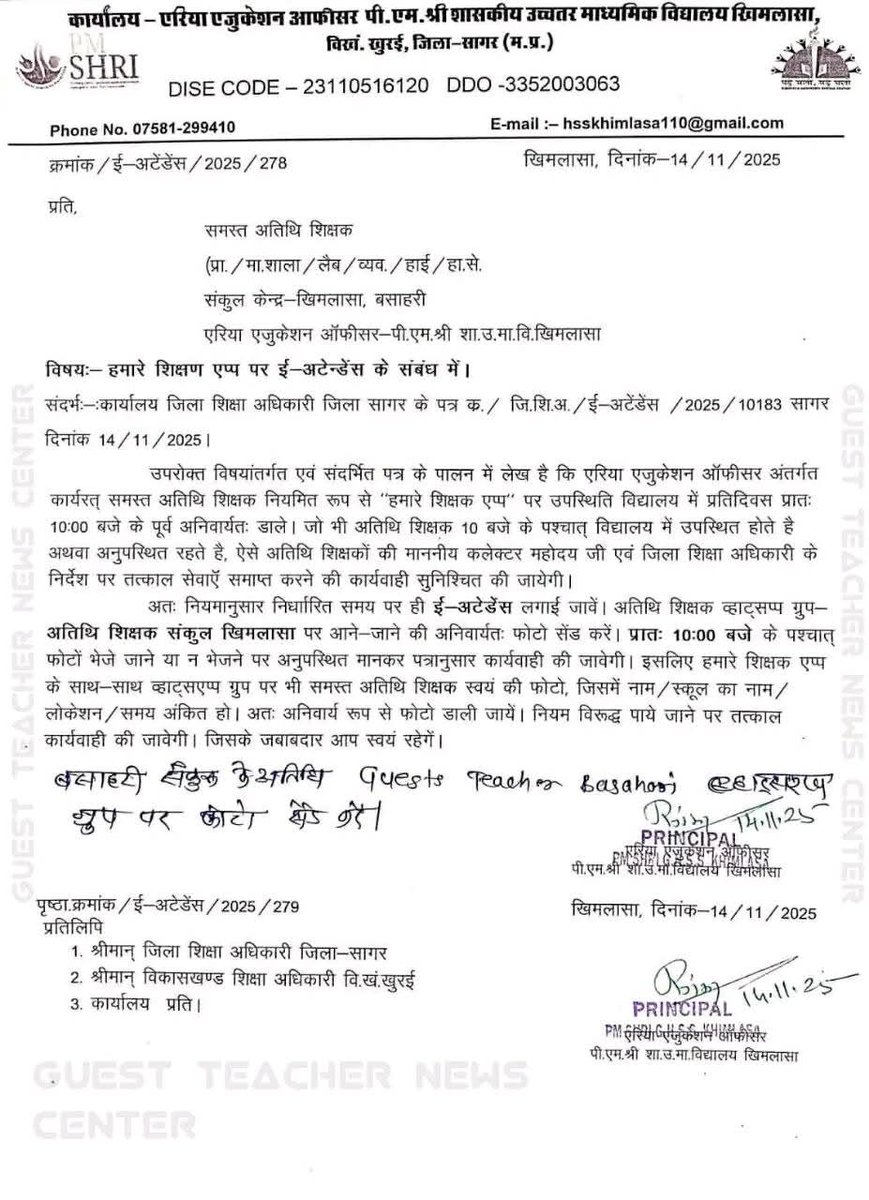 कार्यालय – एरिया एजुकेशन आफीसर पी.एम.श्री शासकीय उच्चतर माध्यमिक विद्यालय खिमलासा,
विखं. खुरई, जिला–सागर (म.प्र.)
PM SHRI
DISE CODE – 23110516120 DDO -3352003063
Phone No. 07581-299410
E-mail :– hsskhimlasa110@gmail.com
क्रमांक/ई–अटेंडेंस/2025/278
खिमलासा, दिनांक–14/11/2025
प्रति,
समस्त अतिथि शिक्षक
(प्रा./मा.शाला/लैब/व्यव./हाई/हा.से.
संकुल केन्द्र–खिमलासा, बसाहरी
एरिया एजुकेशन ऑफीसर–पी.एम.श्री शा.उ.मा.वि.खिमलासा
विषयः– हमारे शिक्षण एप्प पर ई–अटेन्डेंस के संबंध में।
संदर्भः–:कार्यालय जिला शिक्षा अधिकारी जिला सागर के पत्र क./ जि.शि.अ./ई–अटेंडेंस /2025/10183 सागर
दिनांक 14/11/2025।
उपरोक्त विषयांतर्गत एवं संदर्भित पत्र के पालन में लेख है कि एरिया एजुकेशन ऑफीसर अंतर्गत
कार्यरत् समस्त अतिथि शिक्षक नियमित रूप से "हमारे शिक्षक एप्प" पर उपस्थिति विद्यालय में प्रतिदिवस प्रातः
10:00 बजे के पूर्व अनिवार्यतः डाले। जो भी अतिथि शिक्षक 10 बजे के पश्चात् विद्यालय में उपस्थित होते है
अथवा अनुपस्थित रहते है, ऐसे अतिथि शिक्षकों की माननीय कलेक्टर महोदय जी एवं जिला शिक्षा अधिकारी के
निर्देश पर तत्काल सेवाऍ समाप्त करने की कार्यवाही सुनिश्चित की जायेगी।
अतः नियमानुसार निर्धारित समय पर ही ई–अटेडेंस लगाई जावें। अतिथि शिक्षक व्हाट्सप्प ग्रुप–
अतिथि शिक्षक संकुल खिमलासा पर आने–जाने की अनिवार्यतः फोटो सेंड करें। प्रातः 10:00 बजे के पश्चात्
फोटों भेजे जाने या न भेजने पर अनुपस्थित मानकर पत्रानुसार कार्यवाही की जावेगी। इसलिए हमारे शिक्षक एप्प
के साथ–साथ व्हाटसएप्प ग्रुप पर भी समस्त अतिथि शिक्षक स्वयं की फोटो, जिसमें नाम/स्कूल का नाम/
लोकेशन/समय अंकित हो। अतः अनिवार्य रूप से फोटो डाली जायें। नियम विरूद्ध पाये जाने पर तत्काल
कार्यवाही की जावेगी। जिसके जबाबदार आप स्वयं रहेगें।
बसाहरी संकुल के अतिथि Guests Teacher Basahari
ग्रुप पर फोटो सेंड करें।
14.11.25
PRINCIPAL
एरिया एजुकेशन ऑफीसर
PM SHRI G.H.S.S. KHIMLASA
पी.एम.श्री शा.उ.मा.विद्यालय खिमलासा
पृष्ठा.क्रमांक/ई–अटेडेंस/2025/279
खिमलासा, दिनांक–14/11/2025
प्रतिलिपि
1. श्रीमान् जिला शिक्षा अधिकारी जिला–सागर
2. श्रीमान् विकासखण्ड शिक्षा अधिकारी वि.खं.खुरई
3. कार्यालय प्रति।
14.11.25
PRINCIPAL
PM SHRI G.H.S.S. KHIMLASA
एरिया एजुकेशन ऑफीसर
पी.एम.श्री शा.उ.मा.विद्यालय खिमलासा
GUEST TEACHER NEWS CENTER
GUEST TEACHER NEWS CENTER
GUEST TEACHER NEWS
CENTER